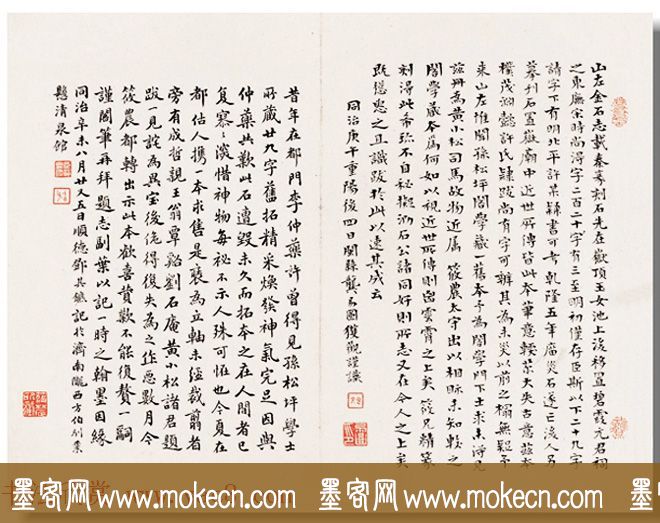 山左金石志載秦篆刻石先在嶽頂玉女池上後移置碧霞元君祠
之東廡宋時尚得字二百二十字有三至明初僅存臣斯以下二十九字
請字下有明北平許某隸書可考乾隆五年廟災石遂亡後人另
摹刊石置嶽廟中近世所傳皆此本筆意較某大失古意茲本
樸茂淵懿許氏隸跋尚有字可辨其為未災以前之搨無疑予
來山左惟聞孫松坪閣學藏一舊本予為閣學門下士求未得見
茲冊為黃小松司馬故物近屬 筱農太守出以相眎未知較之
閣學藏本為何如以視近世所傳則當霄霄之上矣 筱兄精篆
刻得此希珍不自秘擬泐石公諸同好則所志又在今人之上矣
既慫恿之且識跋於此以速其成云
同治庚午重陽後四日閩縣龔易圖獲觀謹識
昔年在都門李仲藥許曾得見孫松坪學士
所藏廿九字舊拓精采煥發神氣完足因與
仲藥共歎此石遭毀未久而拓本之在人間者已
復寥寥淡惜神物每祕不示人殊可恠也今夏在
都估人攜一本求售是裹為立軸未經裁翦者
旁有成哲親王翁覃谿劉石庵黃小松諸君題
跋一見詫為異寶後佹得復失為之作惡數月今
筱農都轉出示此本歡喜贊歎不能復贅一詞
謹閣筆再拜題志副葉以記一時之翰墨因緣
同治辛未八月廿又五日順德鄧其鑣記於濟南隴西方伯別業
懸清泉館
墨客网www.mokecn.com 墨客网www.mokecn.com